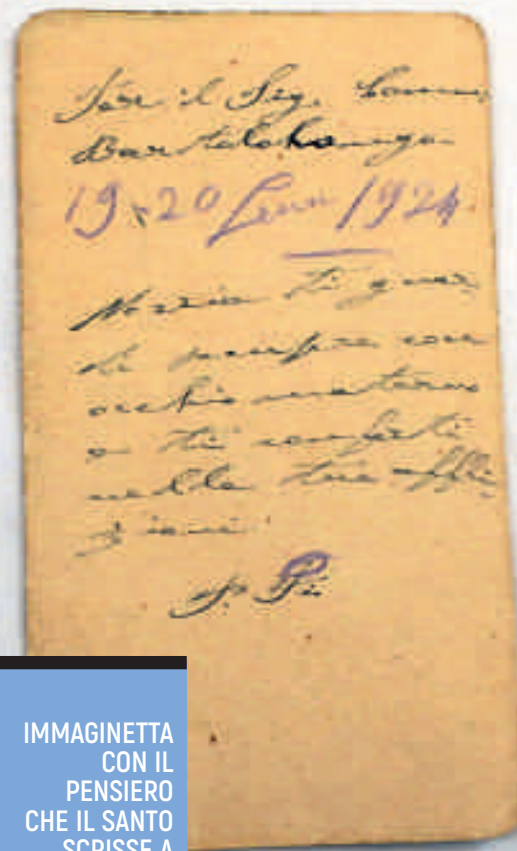 Per il Sig. Comm.
Bartolo Longo
19-20 Genn 1924
Maria ti guar
di sempre con
occhio materno
e ti conforti
nelle tue affli
zioni
P. Pio
IMMAGINETTA
CON IL
PENSIERO
CHE IL SANTO
SCRISSE A